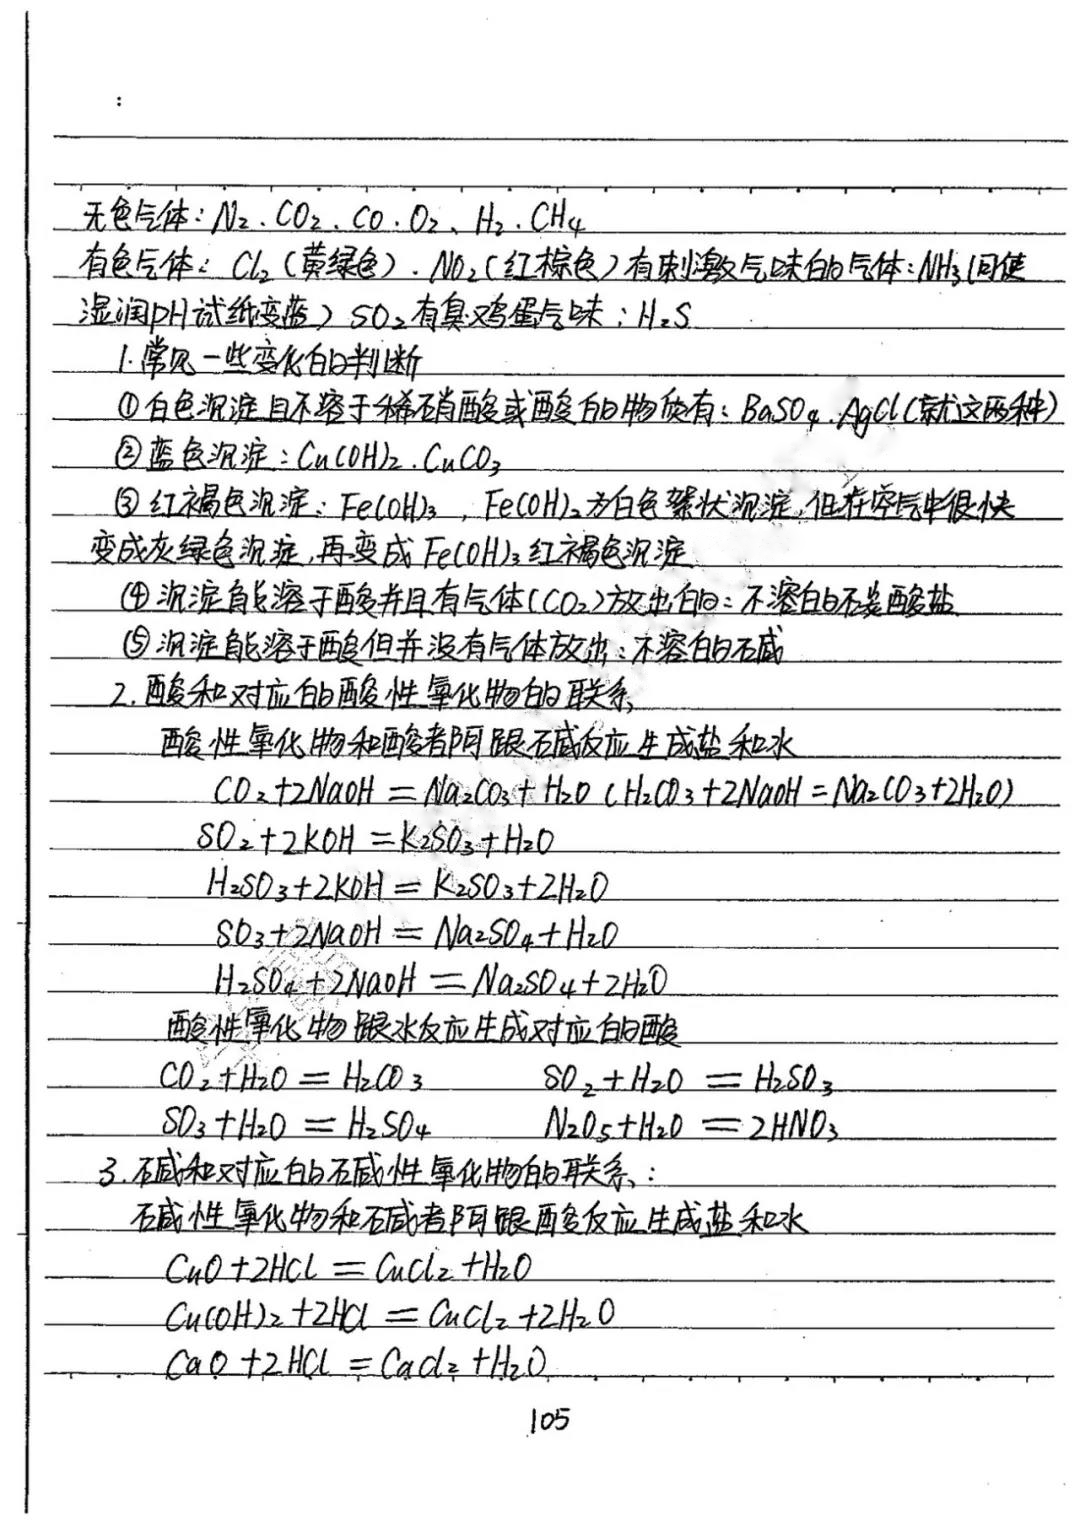 :
无色气体：N₂．CO₂、CO．O₂、H₂．CH₄
有色气体：Cl₂（黄绿色）．NO₂（红棕色）有刺激气味的气体：NH₃（同使
湿润pH试纸变蓝）SO₂有臭鸡蛋气味：H₂S
1.常见一些变化的判断
①白色沉淀且不溶于稀硝酸或酸的物质有：BaSO₄．AgCl（就这两种）
②蓝色沉淀：Cu(OH)₂．CuCO₃
③红褐色沉淀：Fe(OH)₃，Fe(OH)₂为白色絮状沉淀，但在空气中很快
变成灰绿色沉淀，再变成Fe(OH)₃红褐色沉淀
④沉淀能溶于酸并且有气体（CO₂）放出的：不溶的碳酸盐
⑤沉淀能溶于酸但并没有气体放出：不溶的碱
2.酸和对应的酸性氧化物的联系
酸性氧化物和酸者阿跟碱反应生成盐和水
CO₂+2NaOH=Na₂CO₃+H₂O（H₂CO₃+2NaOH=Na₂CO₃+2H₂O）
SO₂+2KOH=K₂SO₃+H₂O
H₂SO₃+2KOH=K₂SO₃+2H₂O
SO₃+2NaOH=Na₂SO₄+H₂O
H₂SO₄+2NaOH=Na₂SO₄+2H₂O
酸性氧化物跟水反应生成对应的酸
CO₂+H₂O=H₂CO₃ SO₂+H₂O=H₂SO₃
SO₃+H₂O=H₂SO₄ N₂O₅+H₂O=2HNO₃
3.碱和对应的碱性氧化物的联系：
碱性氧化物和碱者阿跟酸反应生成盐和水
CuO+2HCl=CuCl₂+H₂O
Cu(OH)₂+2HCl=CuCl₂+2H₂O
CaO+2HCl=CaCl₂+H₂O
105